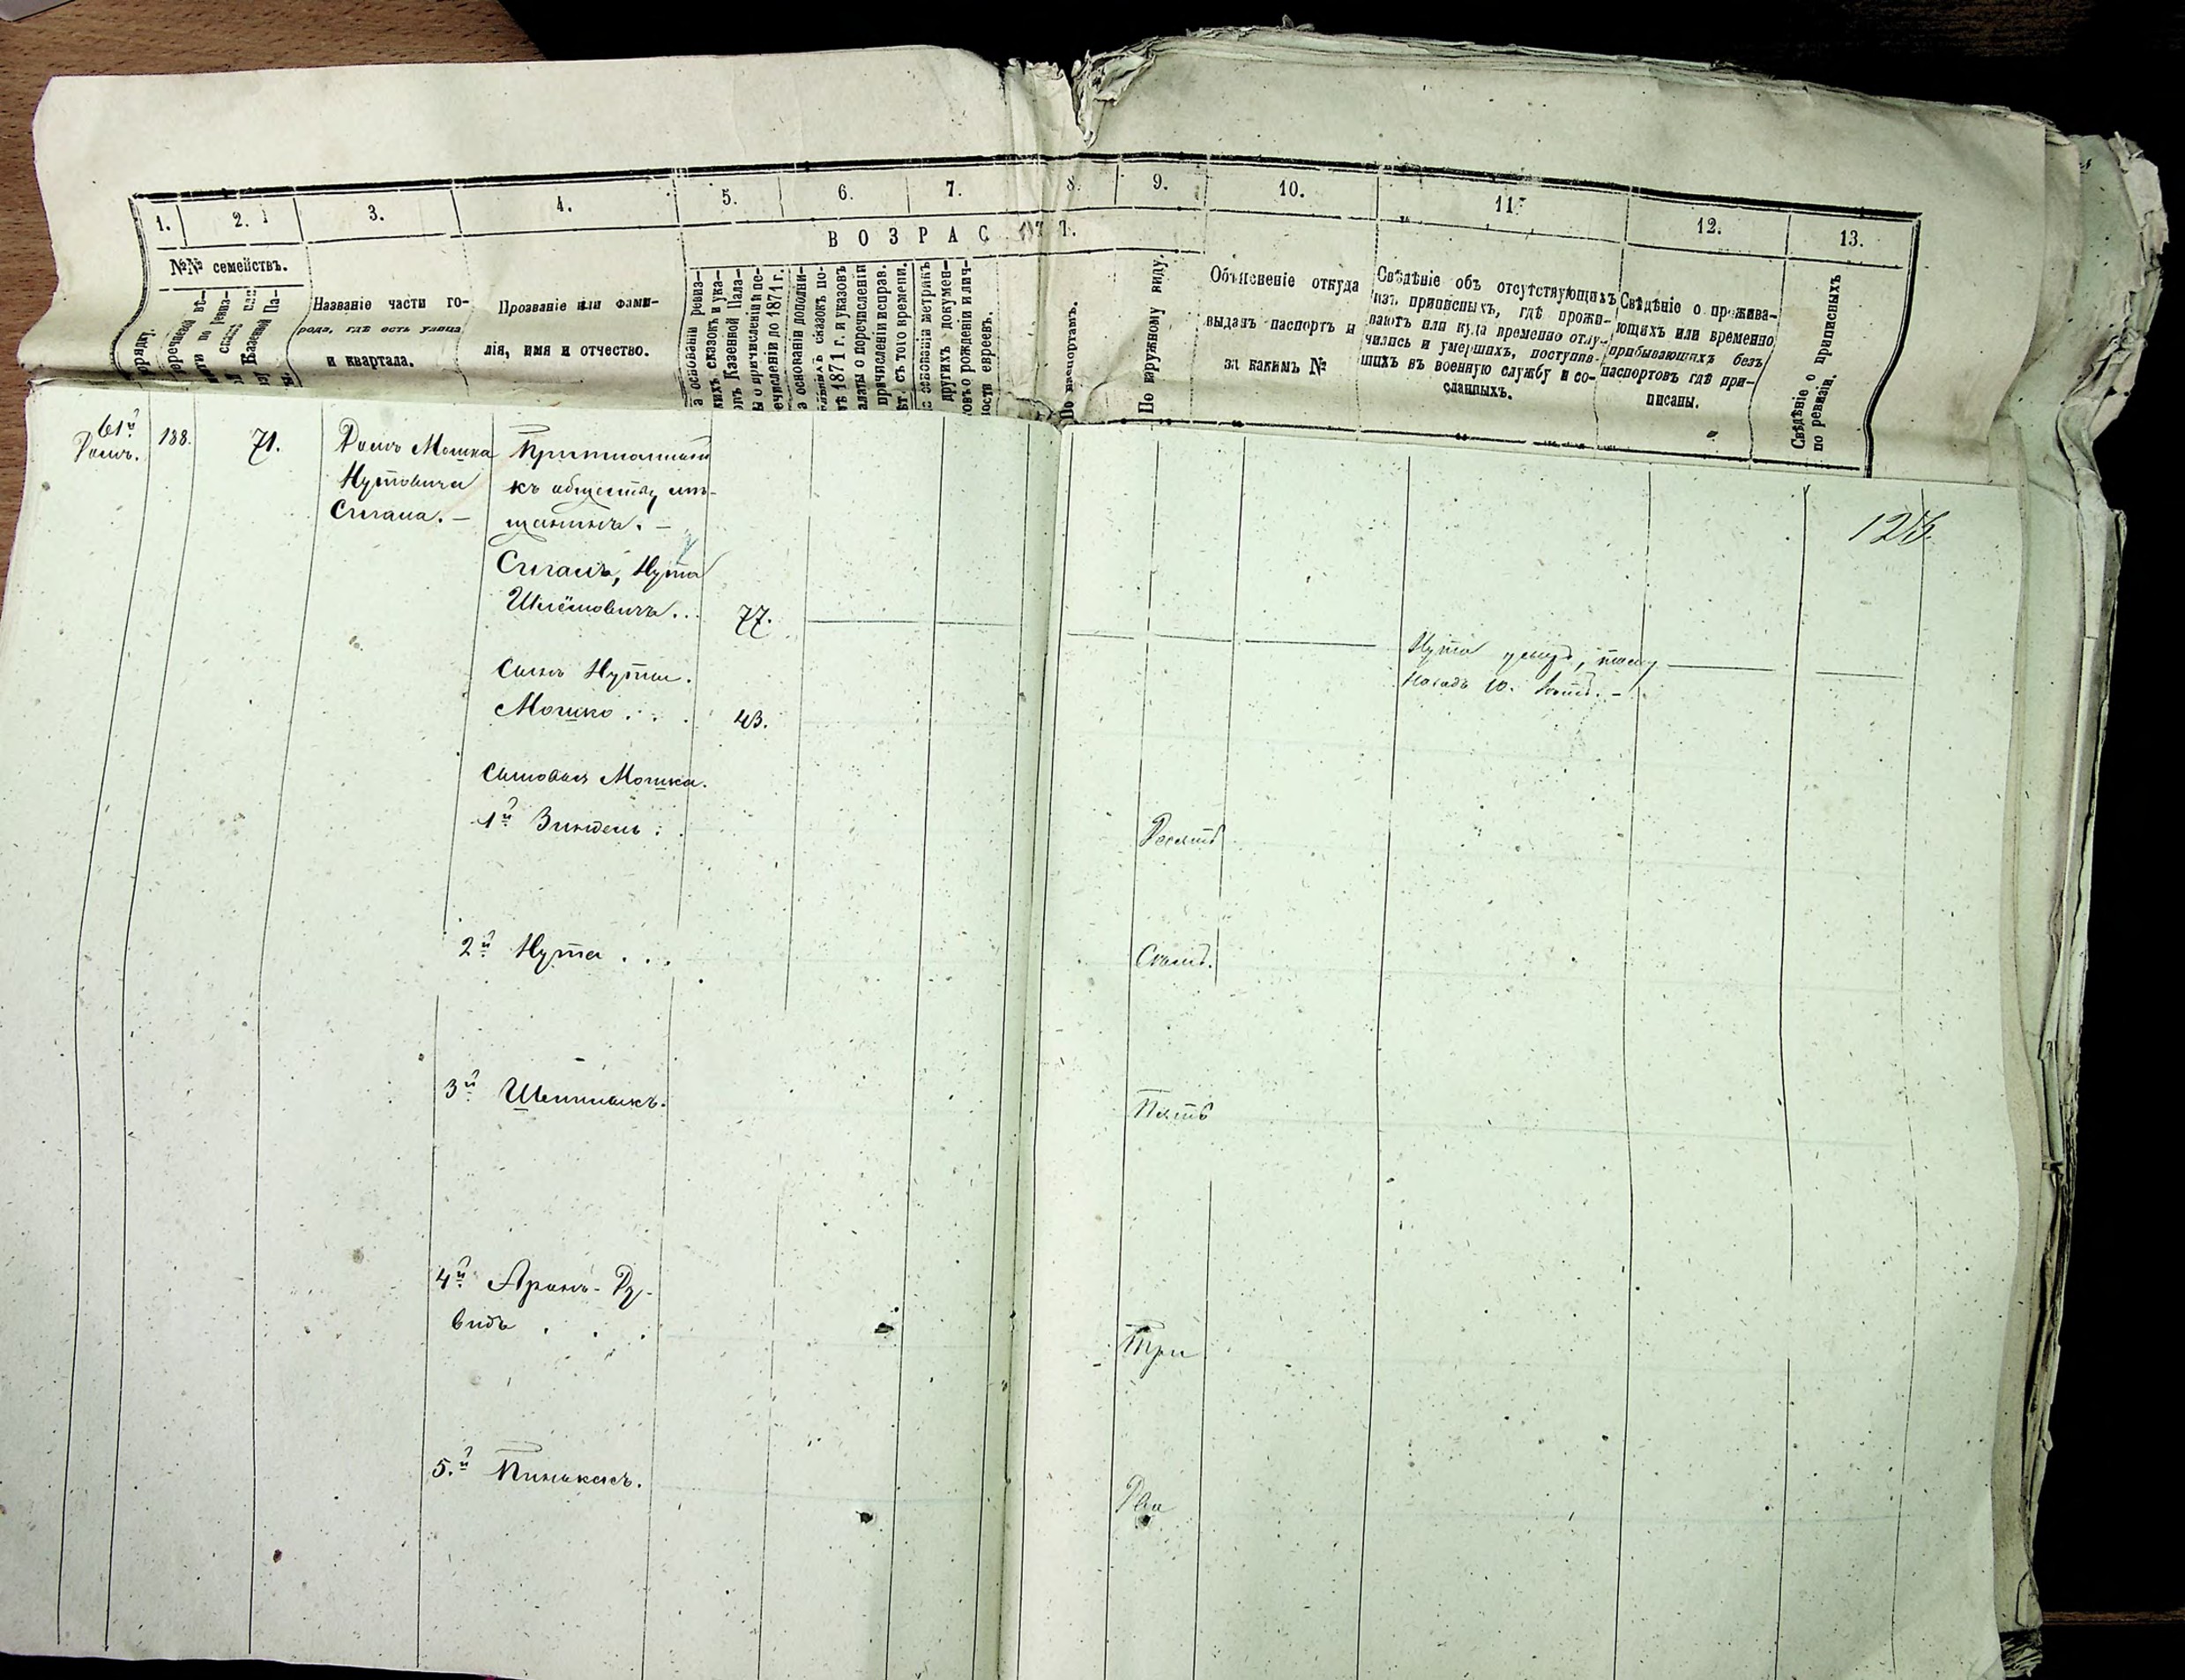 1. 2. 3. 4. 5. 6. 7. 8. 9. 10. 11. 12. 13.
ВОЗРАС Т.
№№ семействъ.
Названіе части го-
рода, гдѣ есть улица
и квартала.
Прозваніе или фами-
лія, имя и отчество.
а основаніи ревиз-
скихъ сказокъ и ука-
Казенной Пала-
ы о причисленіи и пе-
речисленіи до 1871 г.
а основаніи дополни-
сказокъ по-
1871 г. и указовъ
палаты о перечисленіи
причисленіи исправ.
лѣт. съ того времени.
основаніи метрикъ
другихъ докумен-
товъ о рожденіи и лич-
ности евреевъ.
По паспортамъ.
По наружному виду.
Объясненіе откуда
выданъ паспортъ и
за какимъ №
Свѣдѣніе объ отсутствующихъ
изъ приписныхъ, гдѣ прожи-
ваютъ или куда временно отлу-
чились и умершихъ, поступив-
шихъ въ военную службу и со-
сланныхъ.
Свѣдѣніе о прожива-
ющихъ или временно
прибывающихъ безъ
паспортовъ гдѣ при-
писаны.
Свѣдѣніе о приписныхъ
по ревизіи.
61й
Домъ.
188.
71.
Домъ Мошка
Нутовича
Сигала. —
къ обществу мѣ-
щанинъ. —
Сигалъ, Нута
Шлёмовичъ... 77.
Нута умеръ, тому
назадъ 10. лѣтъ. —
Сынъ Нуты.
Мошко... 43.
Сыновья Мошка.
1й Зиндель: Десять
2й Нута... Семь.
3й Шепшыкъ. Пять
4й Аронъ-Ду-
видъ... Три
5.й Пинькасъ. Два